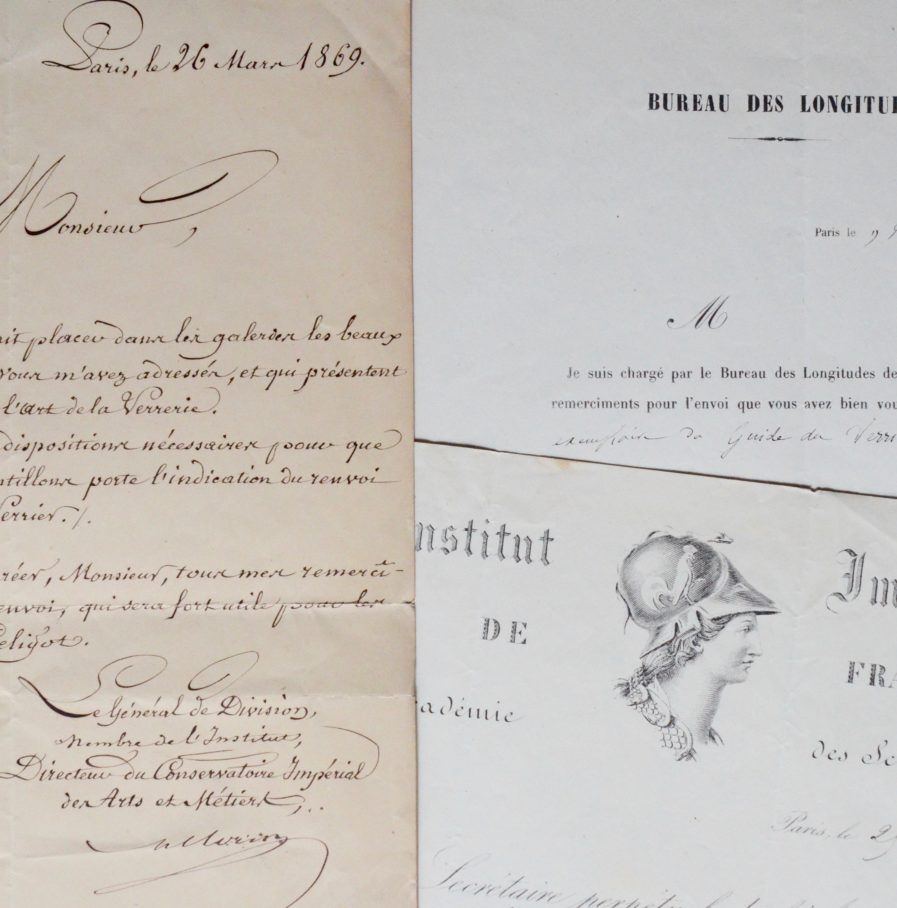 Paris, le 26 Mars 1869.
Monsieur,
ait placer dans les galeries les beaux
vous m'avez adressés, et qui présentent
l'art de la Verrerie.
dispositions nécessaires pour que
ntillons porte l'indication du renvoi
Verrier./.
réer, Monsieur, tous mes remercî-
envoi, qui sera fort utile pour les
Peligot.
Le Général de Division,
Membre de l'Institut,
Directeur du Conservatoire Impérial
des Arts et Métiers,
Morin
BUREAU DES LONGITU
Paris le 9
M
Je suis chargé par le Bureau des Longitudes de
remerciments pour l'envoi que vous avez bien vou
exemplaire du Guide du Verri
nstitut Im
DE FRA
adémie des Sc
Paris, le 2
Secrétaire perpétuel de